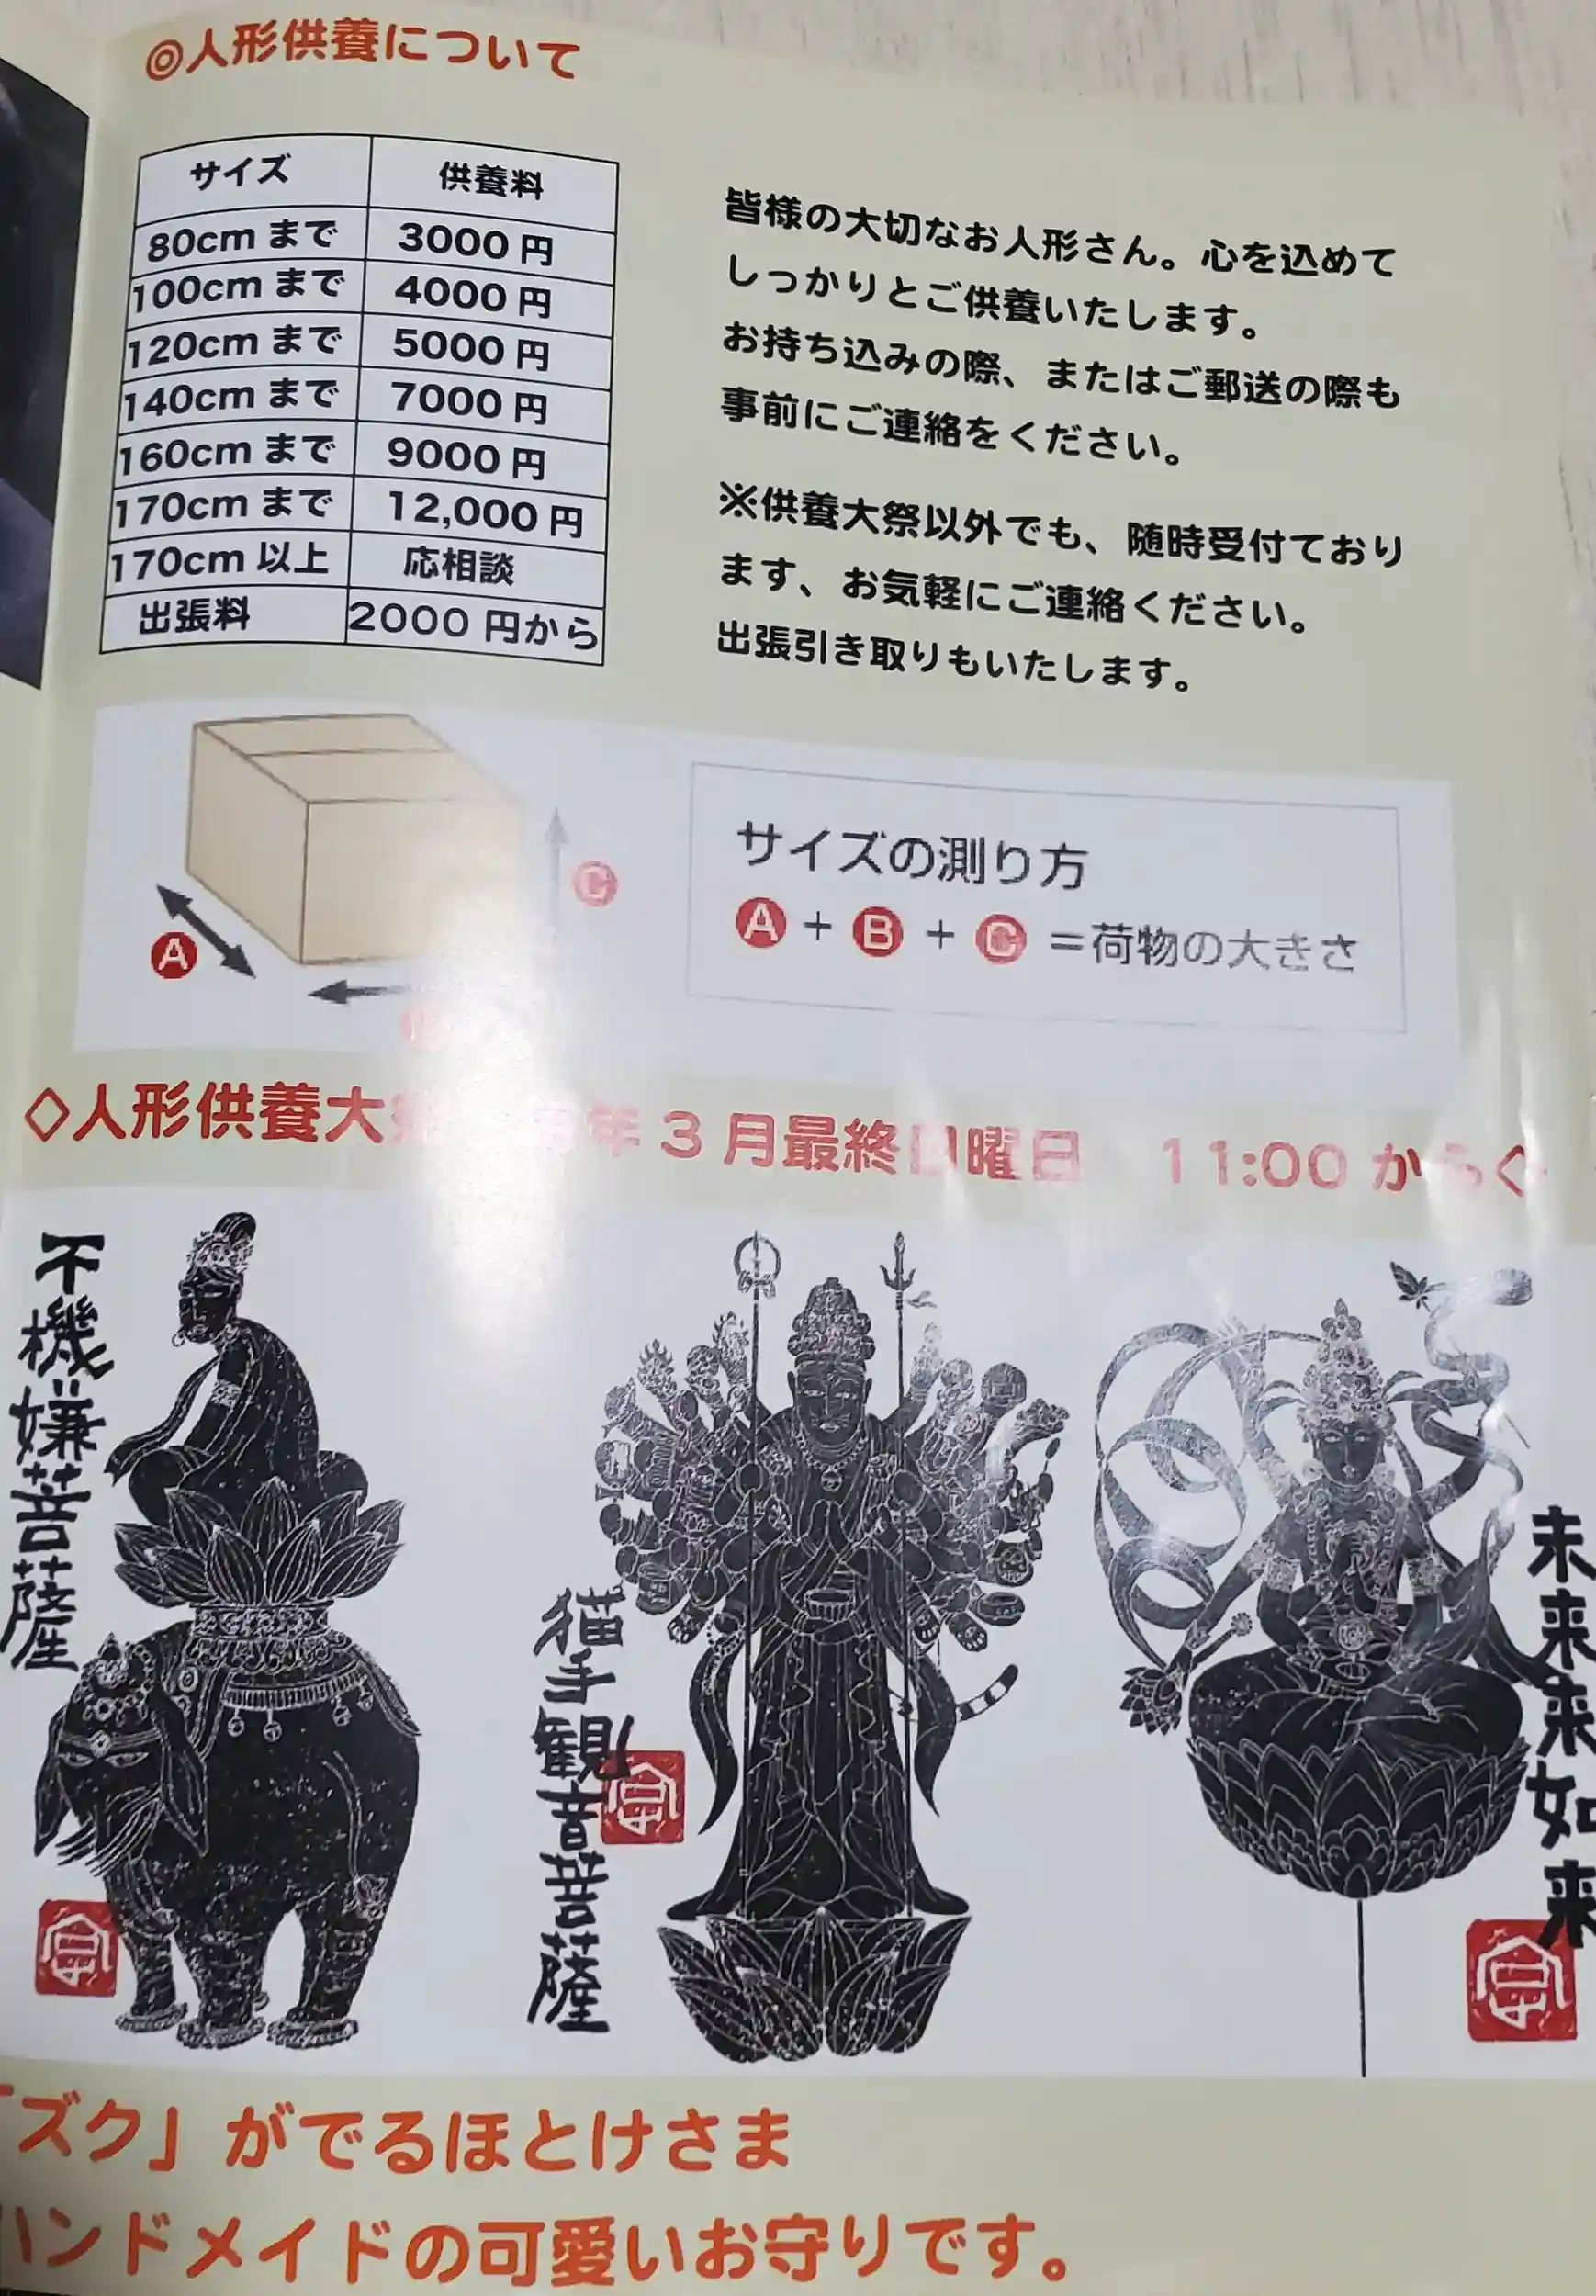 ◎人形供養について
サイズ 供養料
80cm まで 3000 円
100cm まで 4000 円
120cm まで 5000 円
140cm まで 7000 円
160cm まで 9000 円
170cm まで 12,000 円
170cm 以上 応相談
出張料 2000 円から
皆様の大切なお人形さん。心を込めて
しっかりとご供養いたします。
お持ち込みの際、またはご郵送の際も
事前にご連絡をください。
※供養大祭以外でも、随時受付ており
ます、お気軽にご連絡ください。
出張引き取りもいたします。
A
C
サイズの測り方
A + B + C =荷物の大きさ
◇人形供養大祭 年 3 月最終日曜日 11:00 から◇
不機嫌菩薩
猫手観音菩薩
未来来如来
ズク」がでるほとけさま
ハンドメイドの可愛いお守りです。